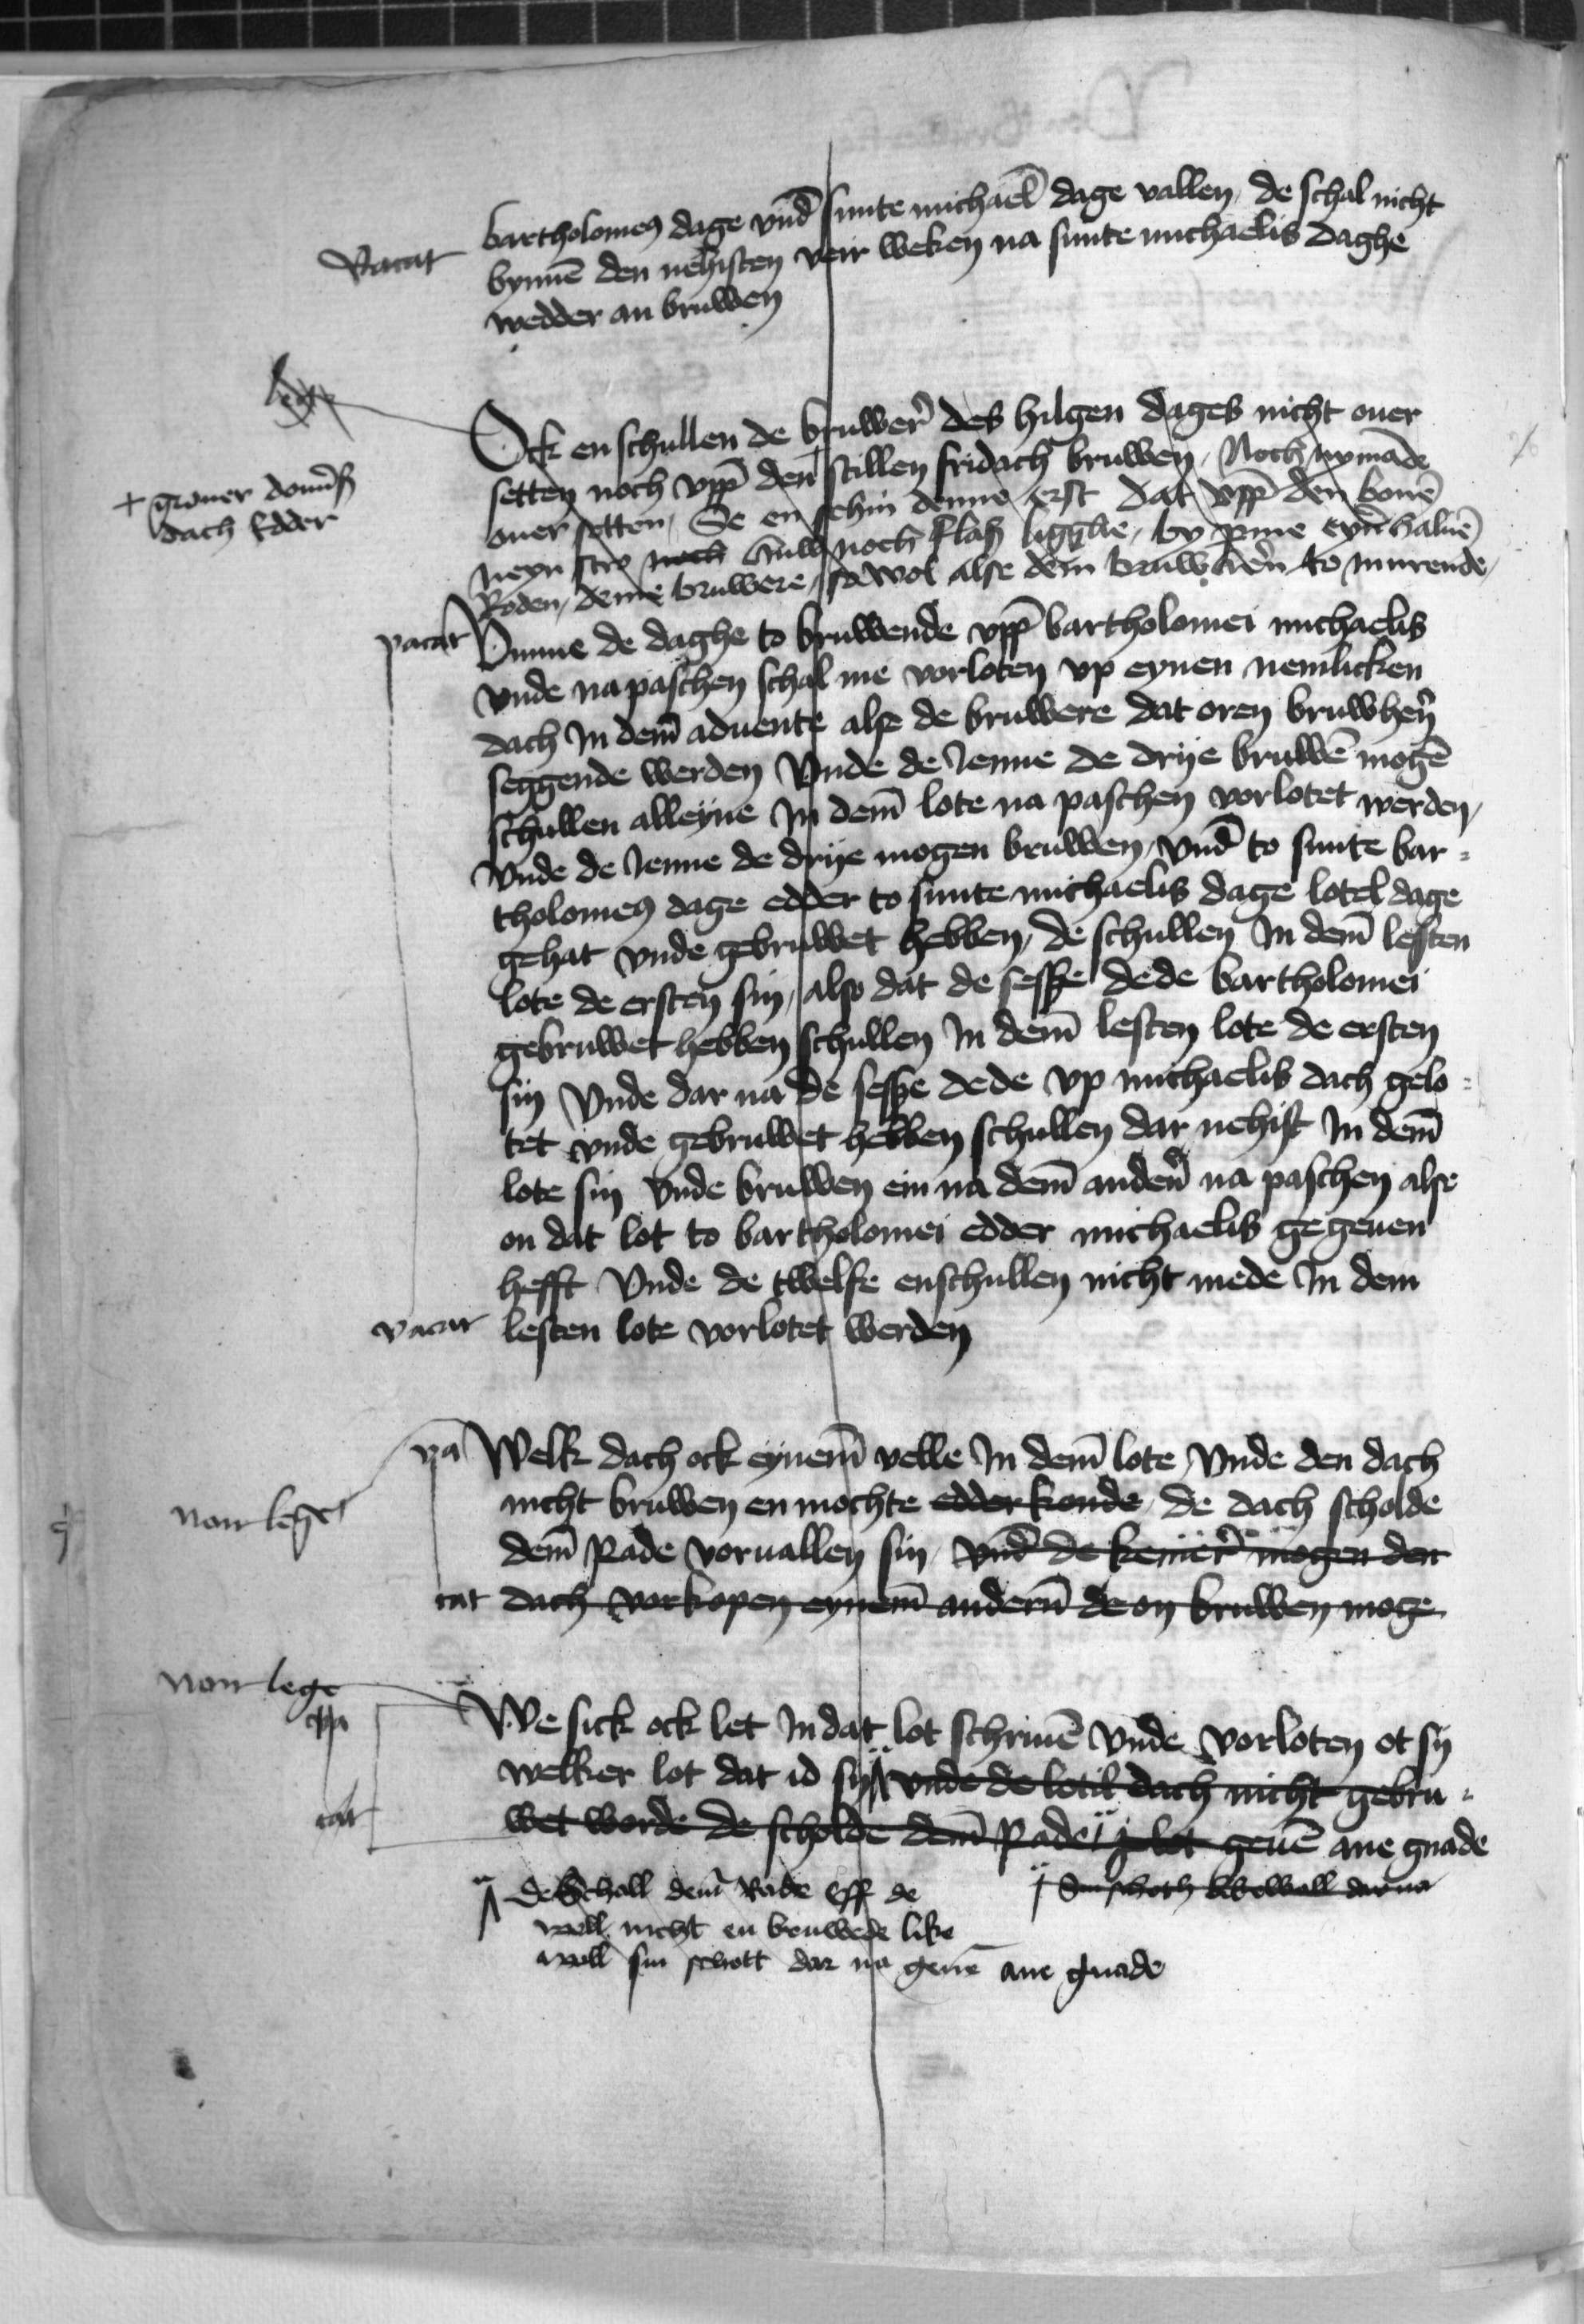 bartholomeꝯ dage vnd̄ sunte michael̄ dage vallen de schal nicht
Vacat
bynnē den nehisten veir weken na sunte michaelis daghe
wedder an bruwen
lege
Ock en schullen de bruwer̄ des hilgen dages nicht ouer
setten noch vpp̄ den + stillen fridach bruwen, Noch nymāde
+ groner donrß
dach Edder
ouer setten, Se en sehin denne erst dat vpp̄ den bouē
neyn stro noch noch flaß ligghe, by pine eyn̄ haluē
Roden, deme bruwere, so wol alse dem bruwhern̄ to murende,
vacat
Vmme de daghe to bruwende vpp̄ bartholomei michaelis
vnde na paschen schal me vorloten vp eynen nemlicken
dach In dem̄ aduente alse de bruwere dat oren bruwhern̄
seggende werden Vnde de Jenne de drije bruwē mogē
schullen alleyne In dem̄ lote na paschen vorlotet werden,
Vnde de Jenne de drije mogen bruwen, vnd̄ to sunte bar⸗
tholomeꝯ dage edder to sunte michaelis dage lotel dage
gehat vnde gebruwet hebben, de schullen In dem̄ lesten
lote de ersten sin, also dat de sesse dede bartholomei
gebruwet hebben schullen In dem̄ lesten lote de ersten
sin Vnde dar na de sesse dede vp michaelis dach gelo⸗
tet vnde gebruwet hebben schullen dar nehist In dem̄
lote sin Vnde bruwen ein na dem̄ andern̄ na paschen alse
on dat lot to bartholomei edder michaelis gegeuen
hefft Vnde de twelfe enschullen nicht mede In dem
vacat
lesten lote vorlotet werden
va
Welk dach ock eynem̄ velle In dem̄ lote Vnde den dach
non lege
nicht bruwen en mochte edder konde, de dach scholde
dem̄ Rade voruallen sin, vnd̄ de kemer̄ mogen den
cat
dach vorkopen eynem̄ andern̄ de on bruwen moge
non lege
We sick ock let In dat lot schriuē Vnde vorloten ot sy
welker lot dat id sy vnde de lotil dach nicht gebru⸗
cat
wet worde de scholde dem̄ Rade j lot geuē ane gnade
de Schall dem̄ Rade Eff de
woll nicht en bruwede like
woll sin schott dar na geuē ane gnade
Sin schoth likewoll dar na